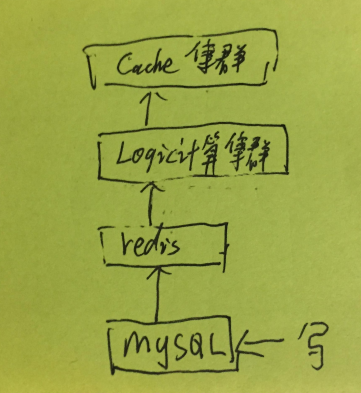 Cache 集群
Logic计算集群
redis
MySQL
写